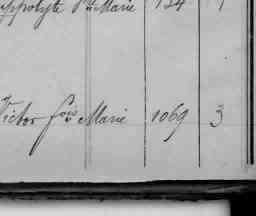 Hippolyte Ste Marie 134 1
Victor fois Marie 1069 3